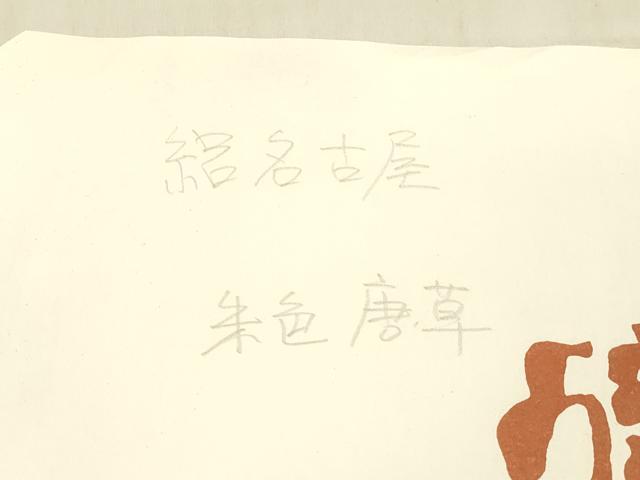 絽名古屋
朱色唐草